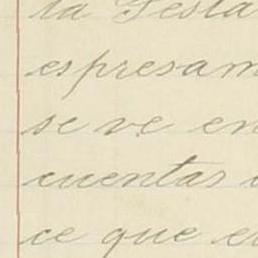 la Testa
espresam
se ve en
cuentas
ce que e